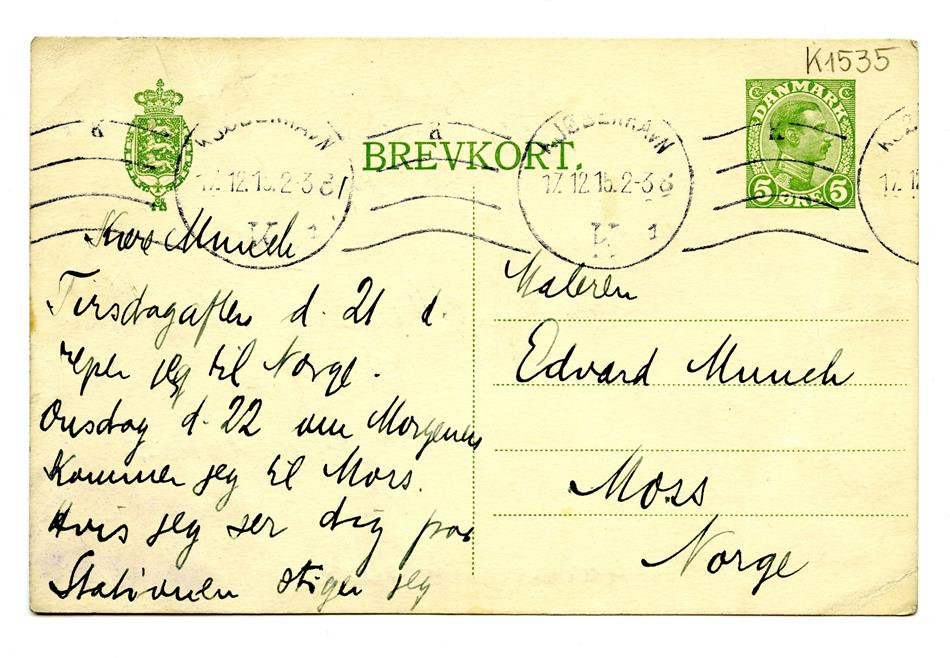 K1535
DANMARK
5 ØRE 5
BREVKORT.
KJØBENHAVN
17.12.15. 2-3 E
K 1
KJØBENHAVN
17.12.15. 2-3 E
K 1
Kære Munch
Tirsdagaften d. 21 d.
rejser jeg til Norge.
Onsdag d. 22 om Morgenen
kommer jeg til Mors.
Hvis jeg ser dig paa
Stationen stiger jeg
Maleren
Edvard Munch
Moss
Norge